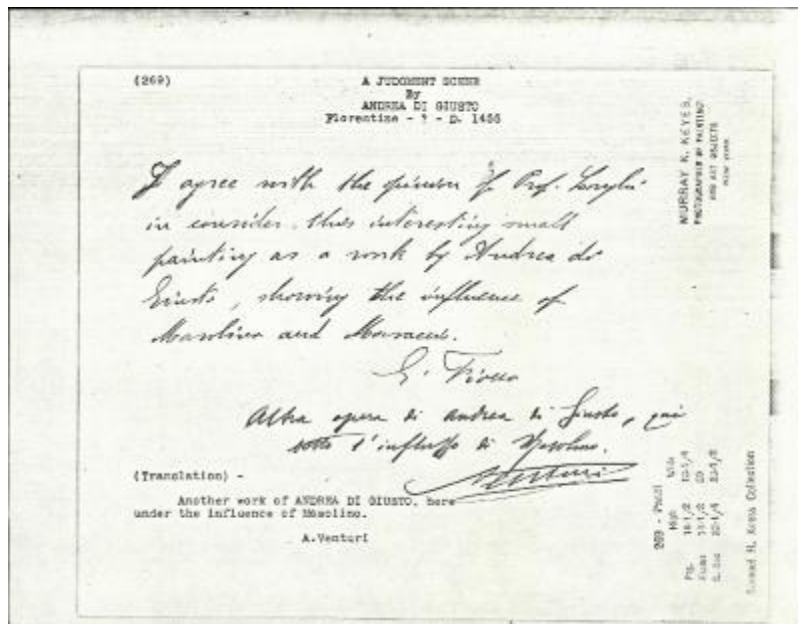 (269)
A JUDGMENT SCENE
By
ANDREA DI GIUSTO
Florentine - ? - D. 1455
I agree with the opinion of Prof. Longhi
in consider. this interesting small
painting as a work by Andrea di
Giusto, showing the influence of
Masolino and Masaccio.
G. Fiocco
Altra opera di Andrea di Giusto, qui
sotto l'influsso di Masolino.
AVenturi
(Translation) -
Another work of ANDREA DI GIUSTO, here
under the influence of Masolino.
A.Venturi
MURRAY K. KEYES,
PHOTOGRAPHER OF PAINTINGS
AND ART OBJECTS
NEW YORK
269 - Panel
High Wide
Samuel H. Kress Collection